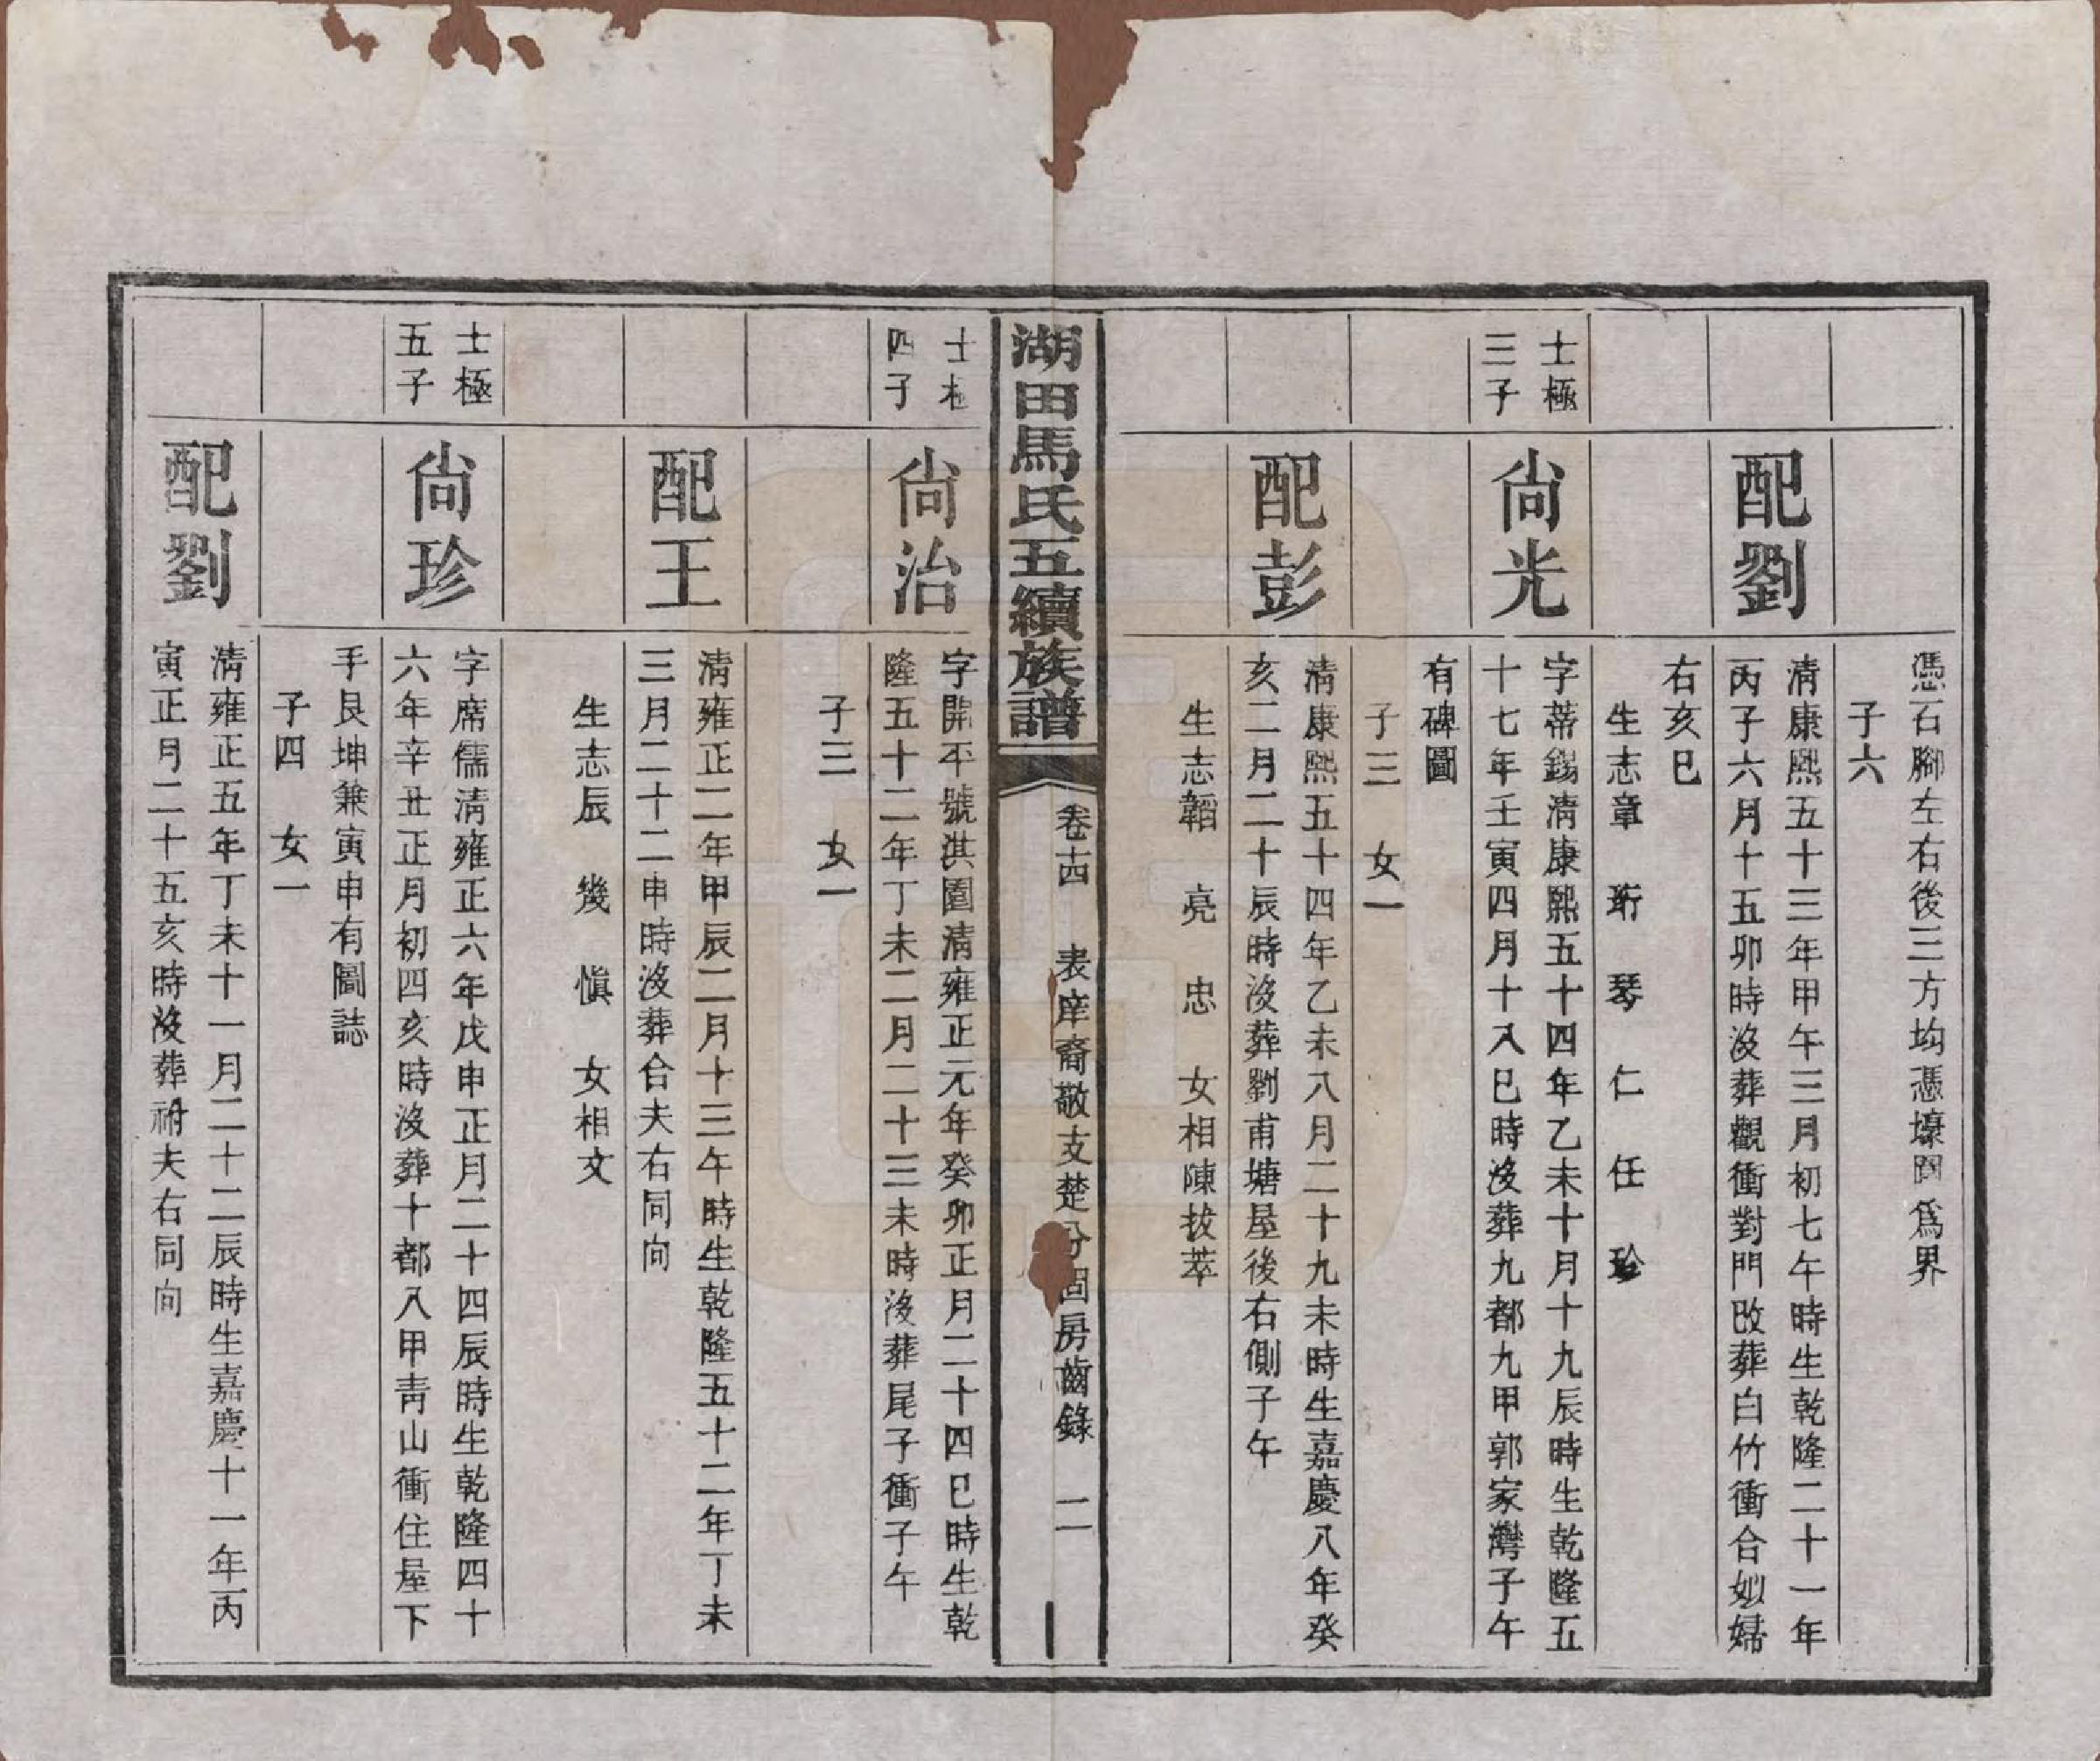 憑石腳左右後三方均憑壕圳爲界
子六
配劉
清康熙五十三年甲午三月初七午時生乾隆二十一年
丙子六月十五卯時沒葬觀衝對門改葬白竹衝合姒婦
右亥巳
生志章 珩 琴 仁 任 珍
士極
三子
尙光
字蒂錫清康熙五十四年乙未十月十九辰時生乾隆五
十七年壬寅四月十八巳時沒葬九都九甲郭家灣子午
有碑圖
子三 女一
配彭
清康熙五十四年乙未八月二十九未時生嘉慶八年癸
亥二月二十辰時沒葬劉甫塘屋後右側子午
生志韜 亮 忠 女相陳拔萃
湖田馬氏五續族譜
卷十四 表庠裔敬支楚分固房齒錄 二
士極
四子
尙治
字開平號淇園清雍正元年癸卯正月二十四巳時生乾
隆五十二年丁未二月二十三未時沒葬尾子衝子午
子三 女一
配王
清雍正二年甲辰二月十三午時生乾隆五十二年丁未
三月二十二申時沒葬合夫右同向
生志辰 幾 愼 女相文
士極
五子
尙珍
字席儒清雍正六年戊申正月二十四辰時生乾隆四十
六年辛丑正月初四亥時沒葬十都八甲靑山衝住屋下
手艮坤兼寅申有圖誌
子四 女一
配劉
清雍正五年丁未十一月二十二辰時生嘉慶十一年丙
寅正月二十五亥時沒葬祔夫右同向